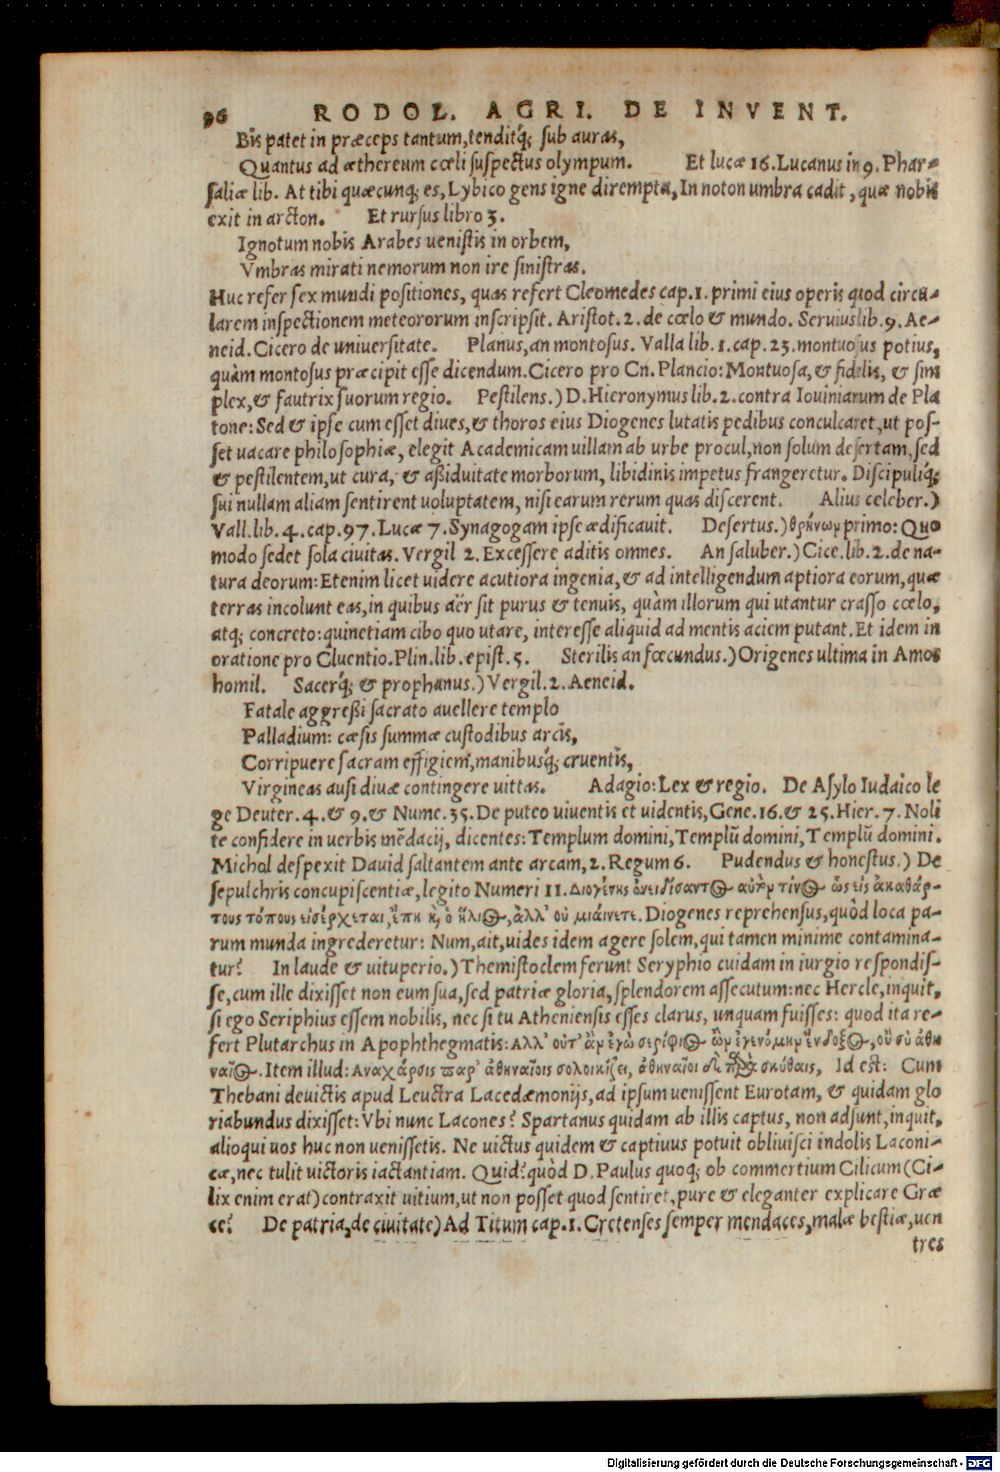 96 RODOL. AGRI. DE INVENT.
Bis patet in præceps tantum, tenditq́; sub auras,
Quantus ad æthereum cœli suspectus olympum. Et lucæ 16. Lucanus in 9. Phar-
saliæ lib. At tibi quæcunq; es, Lybico gens igne dirempta, In noton umbra cadit, quæ nobis
exit in arcton. Et rursus libro 3.
Ignotum nobis Arabes uenistis in orbem,
Vmbras mirati nemorum non ire sinistras.
Huc refer sex mundi positiones, quas refert Cleomedes cap. 1. primi eius operis quod circu-
larem inspectionem meteororum inscripsit. Aristot. 2. de cœlo & mundo. Seruius lib. 9. Ae-
neid. Cicero de uniuersitate. Planus, an montosus. Valla lib. 1. cap. 23. montuosus potius,
quàm montosus præcipit esse dicendum. Cicero pro Cn. Plancio: Montuosa, & fidelis, & sim
plex, & fautrix suorum regio. Pestilens.) D. Hieronymus lib. 2. contra Iouiniarum de Pla
tone: Sed & ipse cum esset diues, & thoros eius Diogenes lutatis pedibus conculcaret, ut pos-
set uacare philosophiæ, elegit Academicam uillam ab urbe procul, non solum desertam, sed
& pestilentem, ut cura, & aßiduitate morborum, libidinis impetus frangeretur. Discipuliq́;
sui nullam aliam sentirent uoluptatem, nisi earum rerum quas discerent. Alius celeber.)
Vall. lib. 4. cap. 97. Lucæ 7. Synagogam ipse ædificauit. Desertus.) θρήνωμ primo: Quo
modo sedet sola ciuitas. Vergil 2. Excessere aditis omnes. An saluber.) Cice. lib. 2. de na-
tura deorum: Etenim licet uidere acutiora ingenia, & ad intelligendum aptiora eorum, quæ
terras incolunt eas, in quibus aër sit purus & tenuis, quàm illorum qui utantur crasso cœlo,
atq; concreto: quinetiam cibo quo utare, interesse aliquid ad mentis aciem putant. Et idem in
oratione pro Cluentio. Plin. lib. epist. 5. Sterilis an fœcundus.) Origenes ultima in Amos
homil. Sacerq́; & prophanus.) Vergil. 2. Aeneid.
Fatale aggreßi sacrato auellere templo
Palladium: cæsis summæ custodibus arcis,
Corripuere sacram effigiem, manibusq́; cruentis,
Virgineas ausi diuæ contingere uittas. Adagio: Lex & regio. De Asylo Iudaico le
ge Deuter. 4. & 9. & Nume. 35. De puteo uiuentis et uidentis, Gene. 16. & 25. Hier. 7. Noli
te confidere in uerbis mẽdacij, dicentes: Templum domini, Templũ domini, Templũ domini.
Michol despexit Dauid saltantem ante arcam, 2. Regum 6. Pudendus & honestus.) De
sepulchris concupiscentiæ, legito Numeri 11. Διογένης ὀνειδίσαντ⊙ αὐτὸμ τίν⊙ ὡς εἰς ἀκαθάρ-
τους τόπους εἰσέρχεται, ἔπη κỳ ὁ ἥλι⊙, ἀλλ' οὐ μιάινετε. Diogenes reprehensus, quòd loca pa-
rum munda ingrederetur: Num, ait, uides idem agere solem, qui tamen minime contamina-
tur? In laude & uituperio.) Themistoclem ferunt Seryphio cuidam in iurgio respondis-
se, cum ille dixisset non eum sua, sed patriæ gloria, splendorem assecutum: nec Hercle, inquit,
si ego Seriphius essem nobilis, nec si tu Atheniensis esses clarus, unquam fuisses: quod ita re-
fert Plutarchus in Apophthegmatis: Αλλ' οὔτ' ἂμ ἐγὼ σερίφι⊙ ὢμ ἐγενόμημ ἔνδοξ⊙, οὔ σὺ ἀθη
ναῖ⊙. Item illud: Αναχάρσις παρ' ἀθηναῖοις σολοικίζει, ἀθηναῖοι δὲ παρὰ σκύθαις, Id est: Cum
Thebani deuictis apud Leuctra Lacedæmonijs, ad ipsum uenissent Eurotam, & quidam glo
riabundus dixisset: Vbi nunc Lacones? Spartanus quidam ab illis captus, non adsunt, inquit,
alioqui uos huc non uenissetis. Ne uictus quidem & captiuus potuit obliuisci indolis Laconi-
cæ, nec tulit uictoris iactantiam. Quid? quòd D. Paulus quoq; ob commertium Cilicum (Ci-
lix enim erat) contraxit uitium, ut non posset quod sentiret, pure & eleganter explicare Græ
ce? De patria, de ciuitate) Ad Titum cap. 1. Cretenses semper mendaces, malæ bestiæ, uen
tres
Digitalisierung gefördert durch die Deutsche Forschungsgemeinschaft - DFG